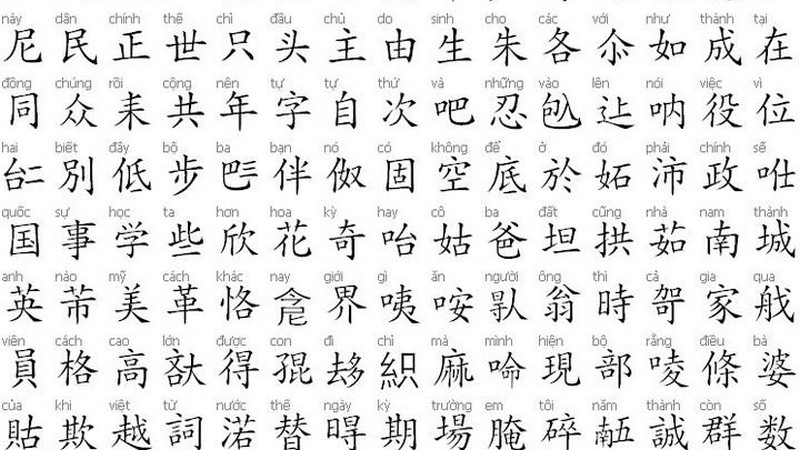 này dân chính thế chỉ đầu chủ do sinh cho các với như thành tại
尼 民 正 世 只 头 主 由 生 朱 各 如 成 在
đồng chúng rồi cộng nên tự tự thứ và những vào lên nói việc vì
同 众 耒 共 年 字 自 次 吧 忍 𨑗 呐 役 位
hai biết đây bộ ba bạn nó có không để ở đó phải chính sẽ
𠄩 別 低 步 𠀧 伴 伮 固 空 底 於 妬 沛 政
quốc sự học ta hơn hoa kỳ hay cô ba đất cũng nhà nam thành
国 事 学 些 欣 花 奇 咍 姑 爸 坦 拱 茹 南 城
anh nào mỹ cách khác nay giới gì ăn người ông thì cả gia qua
英 芇 美 革 恪 界 咦 咹 𠊛 翁 時 哿 家
viên cách cao lớn được con đi chỉ mà mình hiện bộ rằng điều bà
員 格 高 𡘯 得 𡥵 𠫾 織 麻 現 部 㖫 條 婆
của khi việt từ nước thế ngày kỳ trường em tôi năm thành còn số
欺 越 詞 渃 替 期 場 腌 碎 𠄼 誠 群 数